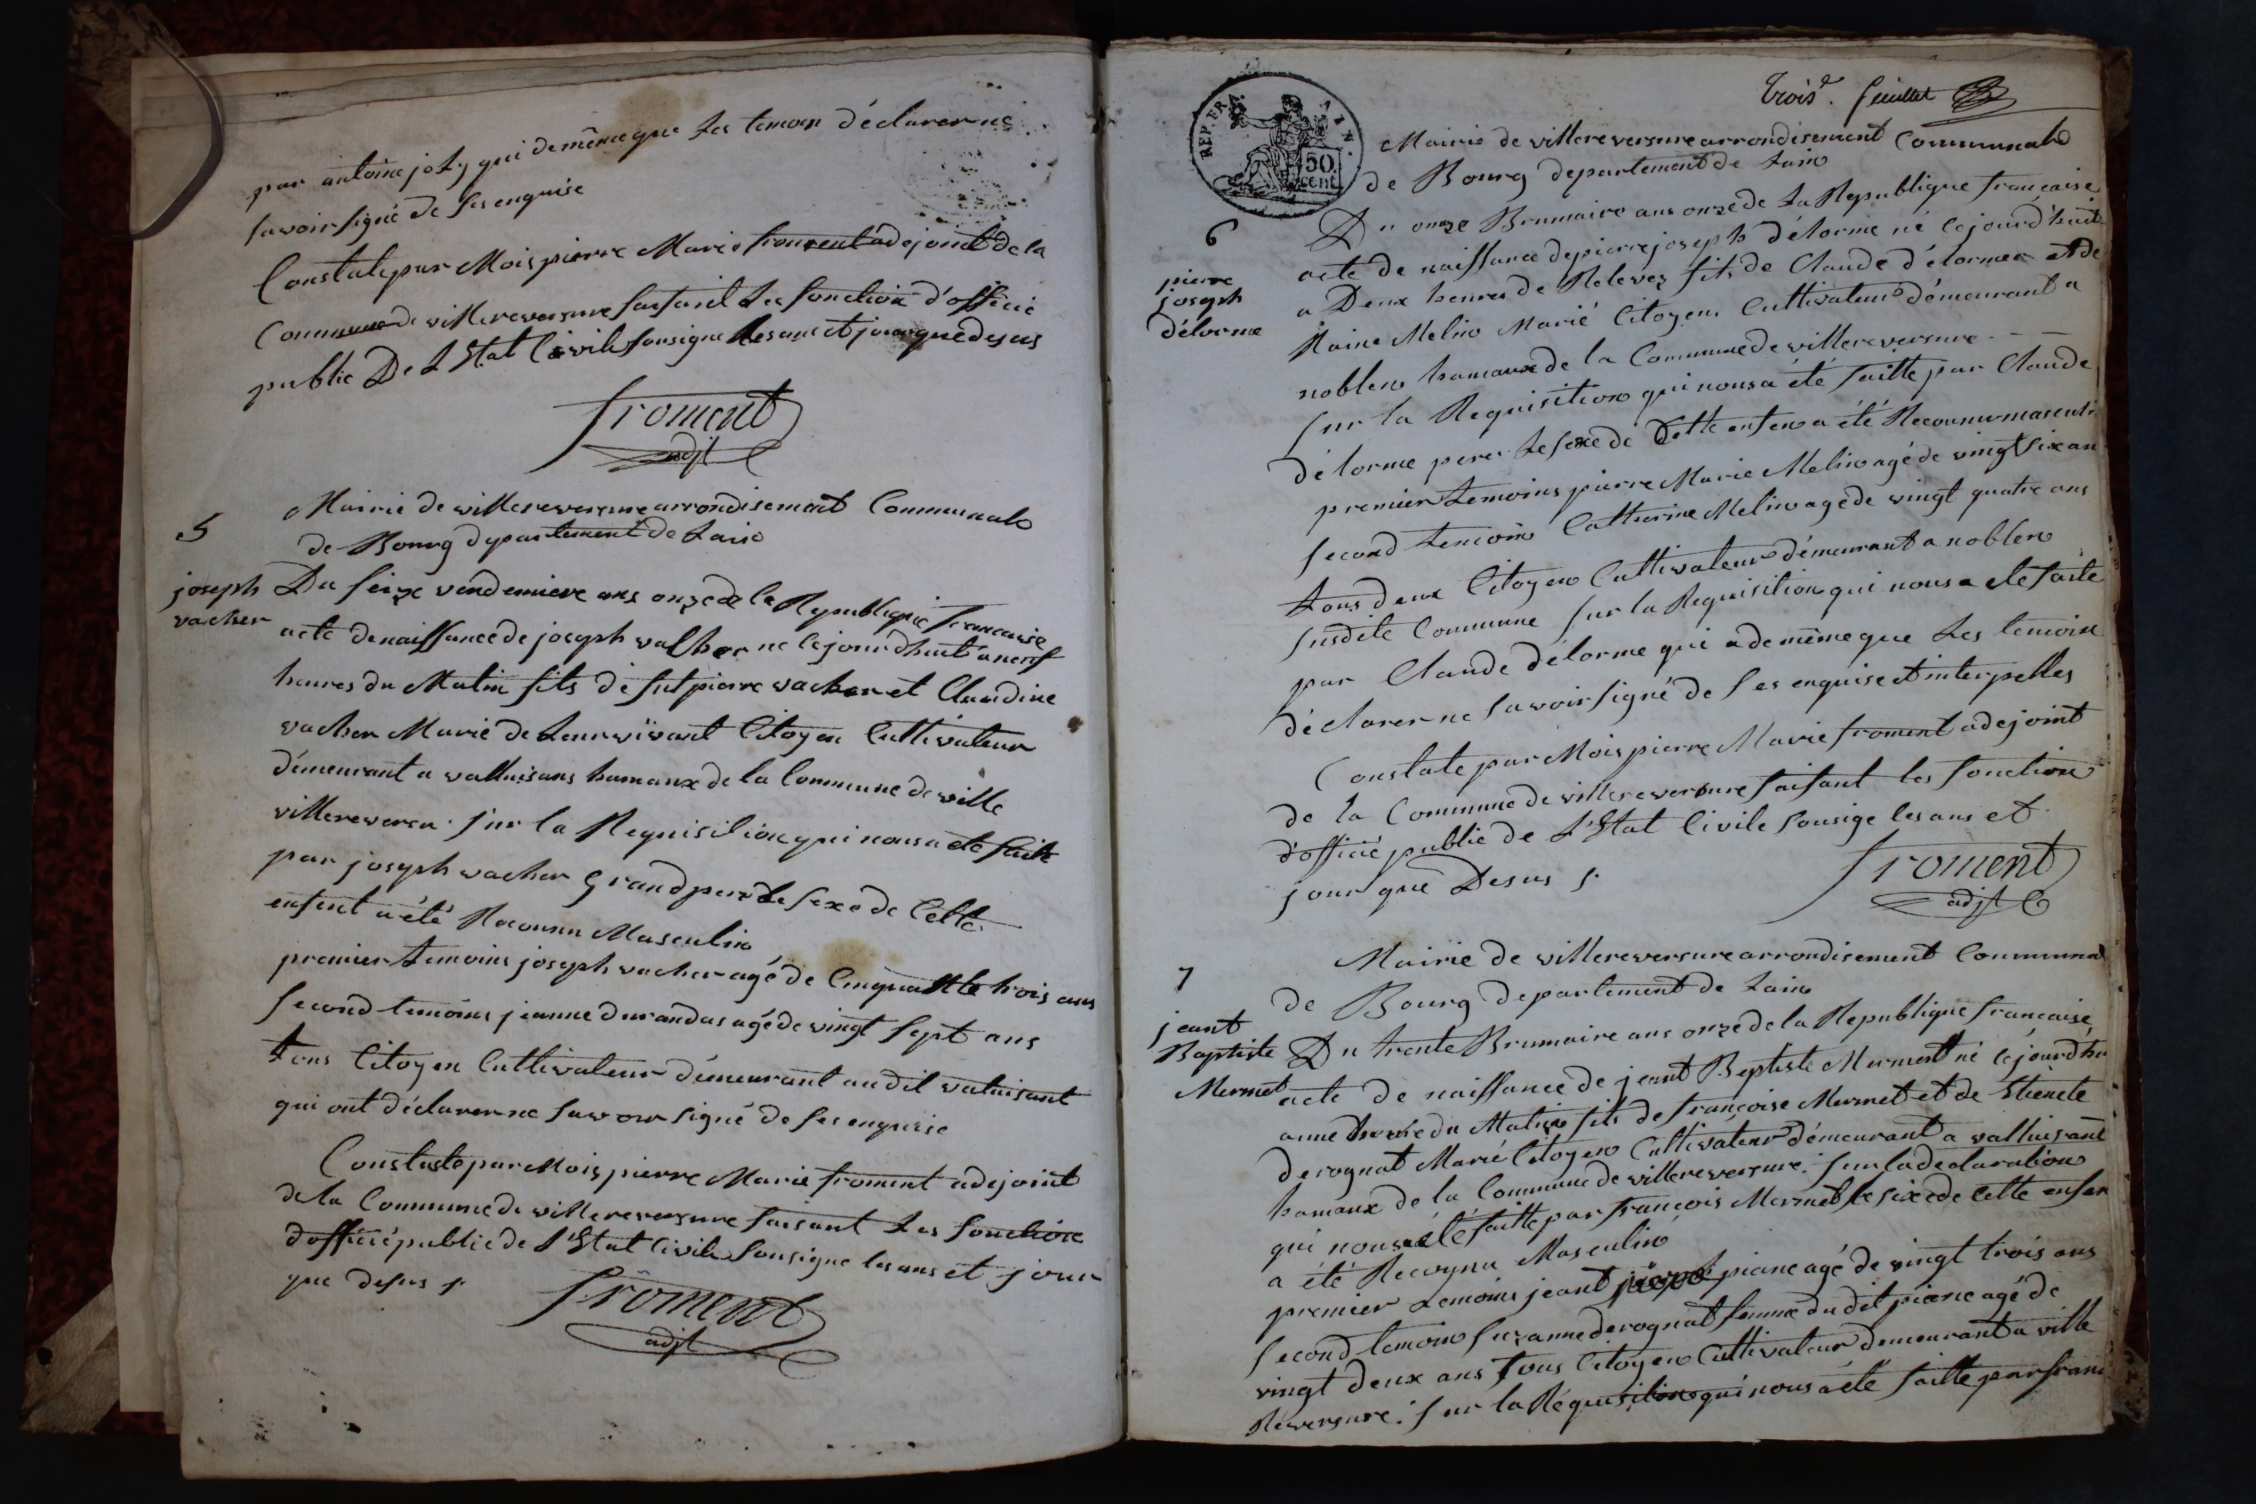 par antoine joly qui de même que les temoin déclarer ne
savoir signé de ses enquise
Constate par Mois pierre Marie froment adejoint de la
Commune de villereversure faisant les fonction d'officié
public De L'Etat Civile sousigne les ans et jour que desus
froment
adjt
5
Mairie de villereversure arrondisement Communale
de Bourg departement de Lain
joseph
vacher
Du seize vendemiere ans onze de la Republique francaise
acte de naissance de joseph vacher ne cejourdhuit a neuf
heures du Matin fils de fut pierre vacher et Claudine
vacher Marié de Leur vivant Citoyen Cultivateur
démeurant a valluisans hamaux de la Commune de ville
villereversu. sur la Requisition qui nous a été faite
par joseph vacher grand pere Le sexe de Cette
enfent a été Reconnu Masculin
premier temoins joseph vacher agé de Cinquante trois ans
second temoins jeanne durandas agé de vingt sept ans
tous Citoyen Cultivateur démeurant audit valuisant
qui ont déclarer ne savoir signé de ses enquise
Constate par Mois pierre Marie froment adejoint
de la Commune de villereversure faisant Les fonction
d'officié public de L'Etat Civile sousigne les ans et jour
que desus s.
froment
adjt
REP. FRA.
50.
cent.
Trois.e feuillet
Mairie de villereversure arrondisement Communale
de Bourg departement de Lain
6
Du onze Brumaire ans onze de La Republique francaise
pierre
joseph
délorme
acte de naissance de pierre joseph délorme né cejourd'huit
a Deux heures de Relevez fils de Claude délormer et de
Raine Melin Marié Citoyen Cultivateur démeurant a
noblen hamaux de la Commune de villereversure
sur la Requisition qui nous a été faitte par Claude
délorme pere Le sexe de Cette enfen a été Reconnu masculi
premier temoins pierre Marie Melin agé de vingt six an
second temoin Catherine Melin agé de vingt quatre ans
tous deux Citoyen Cultivateur démeurant a noblen
susdite Commune sur la Requisition qui nous a ete faite
par Claude délorme qui a de même que Les temoin
déclarer ne savoir signé de ses enquise et interpelles
Constate par Mois pierre Marie froment adejoint
de la Commune de villereversure faisant les fonction
d'officié public de L'Etat Civile sousige les ans et
jour que Desus s.
froment
adjt
7
Mairie de villereversure arrondisement Communal
de Bourg departement de Lain
jeant
Baptiste
Mermet
Du trente Brumaire ans onze de la Republique francaise
acte de naissance de jeant Beptiste Mermet né cejourdhu
a une heure du Matin fils de françoise Mermet et de Etienete
derognat Marié Citoyen Cultivateur démeurant a valluisant
hamaux de la Commune de villereversure. sur la declaration
qui nous a été faitte par françois Mermet le sexe de Cette enfan
a été Recoynu Masculin
premier temoins jeant piane agé de vingt trois ans
second temoin suzanne derognat femme dudit piane agé de
vingt deux ans tous Citoyen Cultivateur demeurant a ville
Reversure. sur la Réquisition qui nous a été faitte par franc